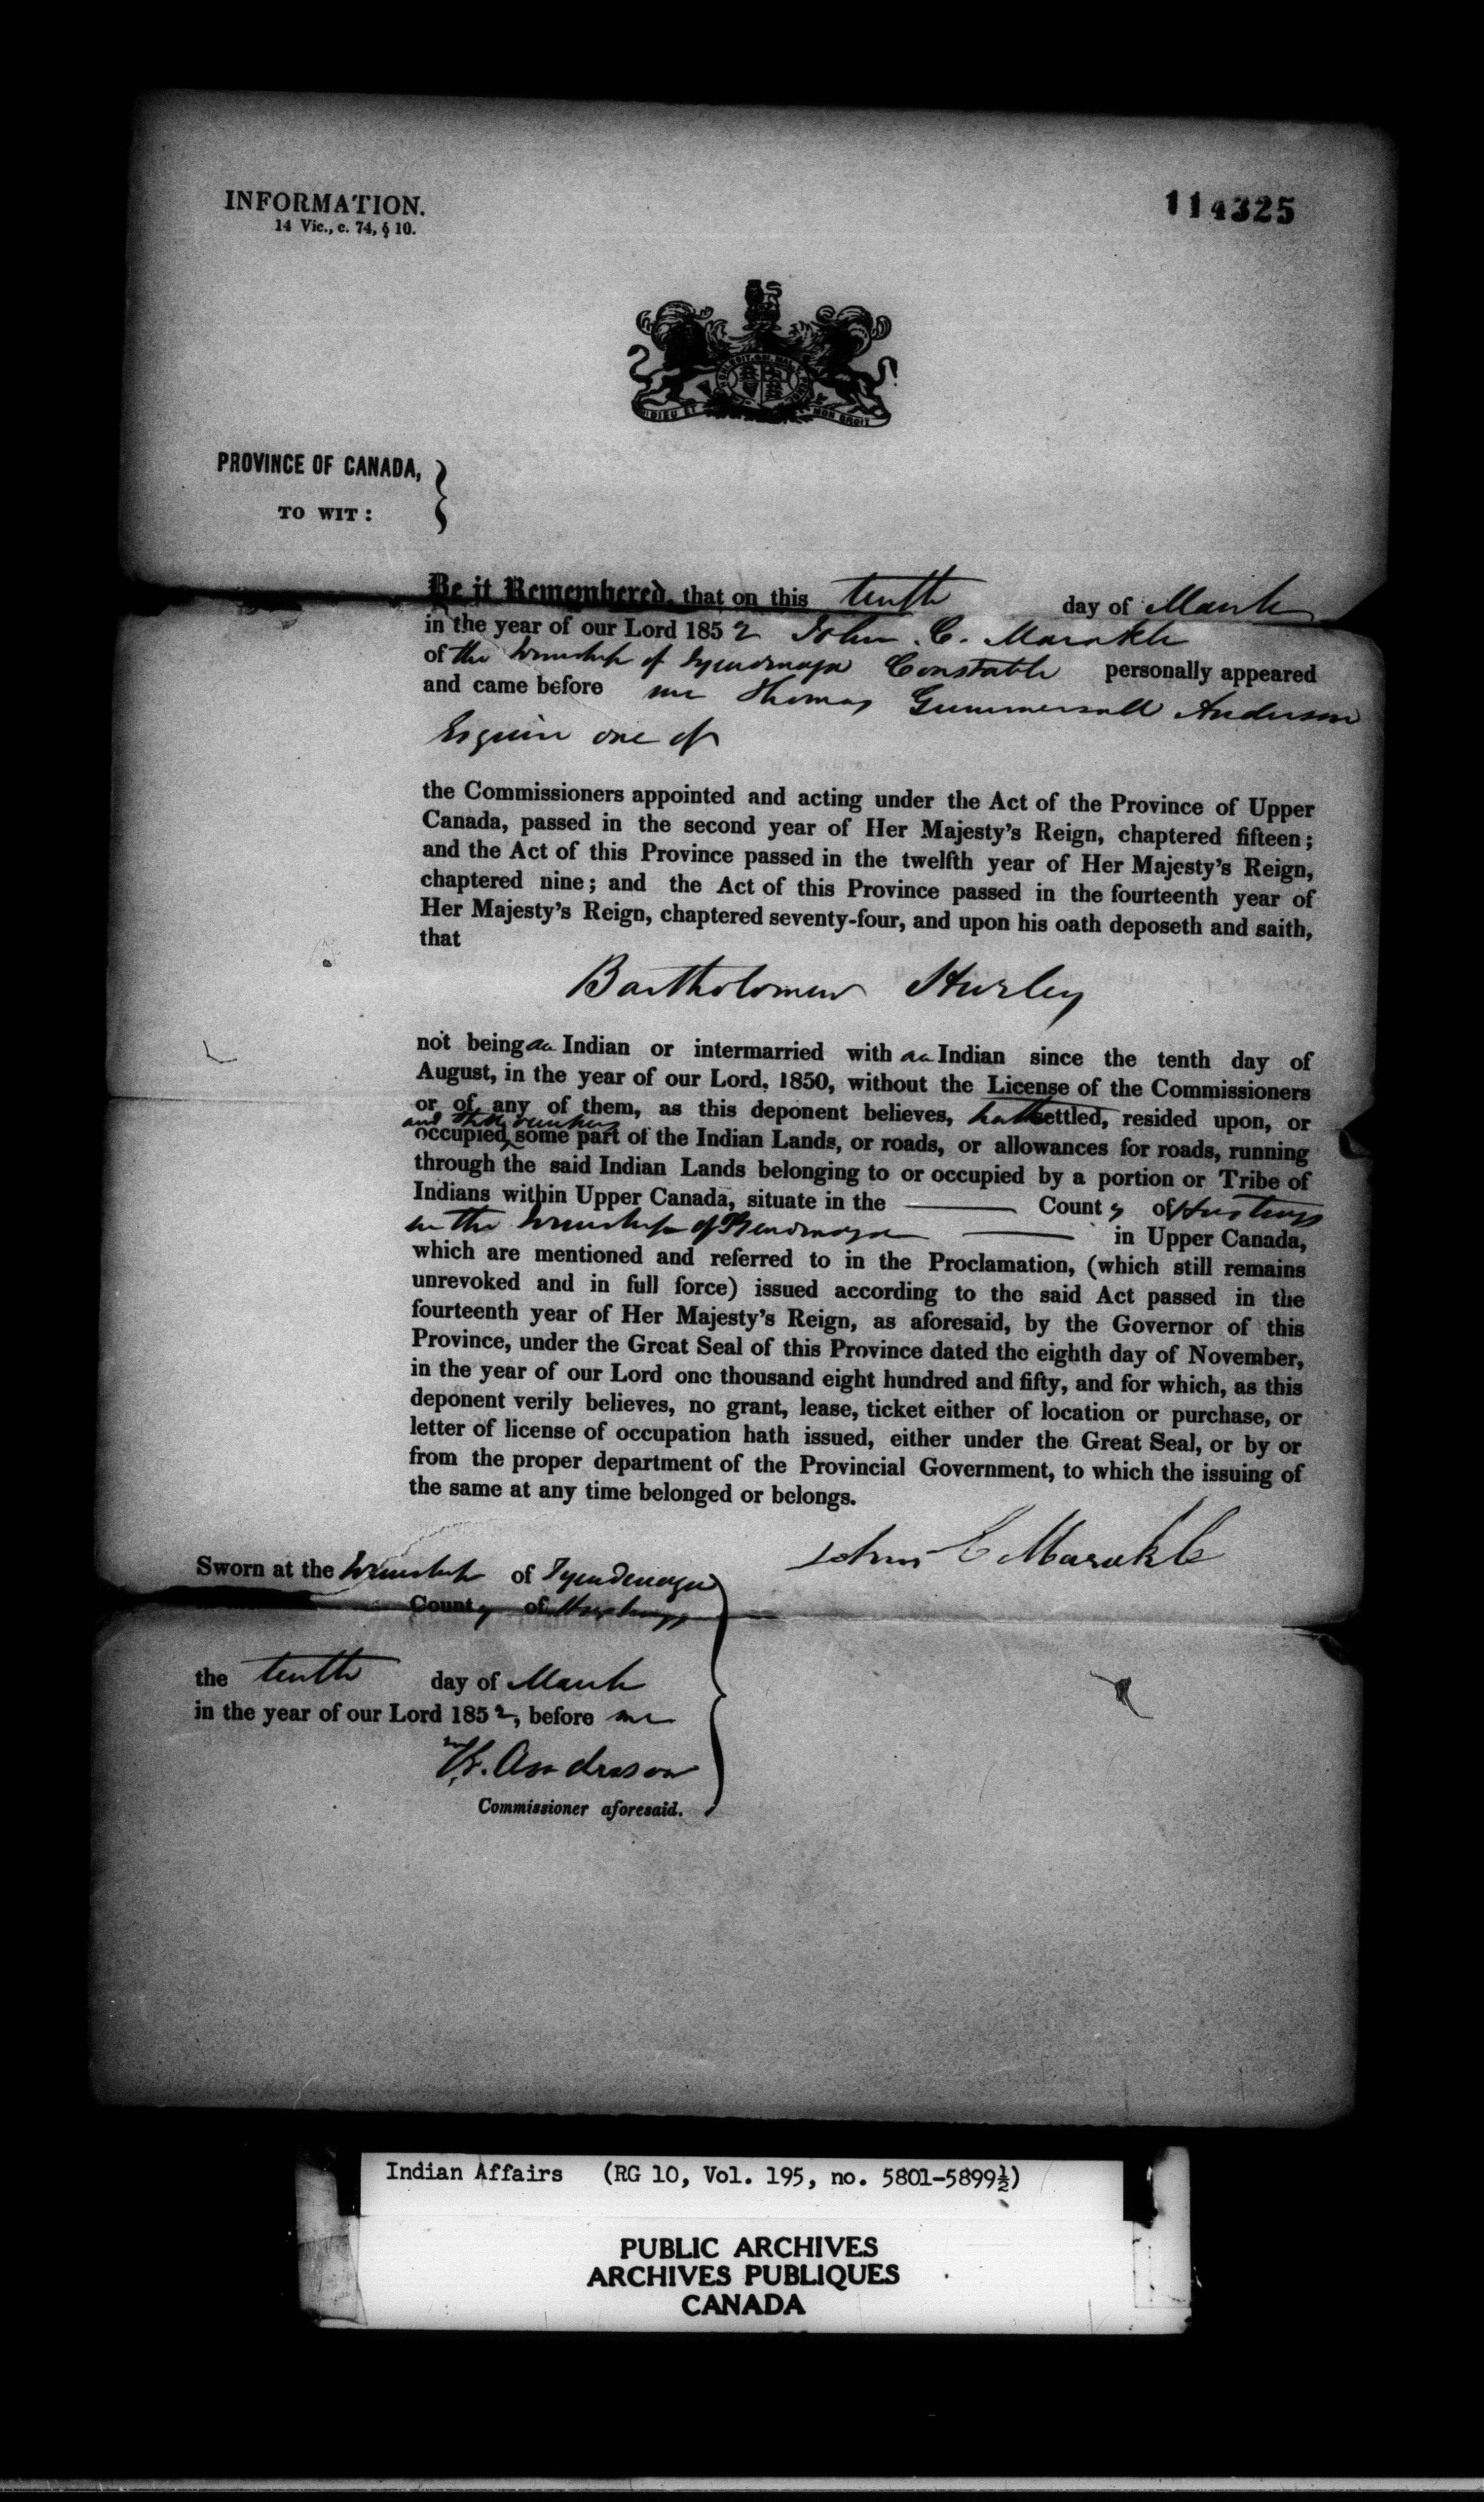 INFORMATION.
14 Vic., c. 74, § 10.
114325
HONI SOIT QUI MAL Y PENSE
DIEU ET MON DROIT
PROVINCE OF CANADA,
TO WIT:
Be it Remembered, that on this tenth day of March
in the year of our Lord 1852 John C. Marakle
of the Township of Tyendenaga Constable personally appeared
and came before me Thomas Gummersall Anderson
Esquire one of
the Commissioners appointed and acting under the Act of the Province of Upper
Canada, passed in the second year of Her Majesty's Reign, chaptered fifteen;
and the Act of this Province passed in the twelfth year of Her Majesty's Reign,
chaptered nine; and the Act of this Province passed in the fourteenth year of
Her Majesty's Reign, chaptered seventy-four, and upon his oath deposeth and saith,
that
Bartholomew Hurley
not being an Indian or intermarried with an Indian since the tenth day of
August, in the year of our Lord, 1850, without the License of the Commissioners
or of any of them, as this deponent believes, hath settled, resided upon, or
and still occupies
occupied, some part of the Indian Lands, or roads, or allowances for roads, running
through the said Indian Lands belonging to or occupied by a portion or Tribe of
Indians within Upper Canada, situate in the County of Hastings
in the Township of Tyendenaga in Upper Canada,
which are mentioned and referred to in the Proclamation, (which still remains
unrevoked and in full force) issued according to the said Act passed in the
fourteenth year of Her Majesty's Reign, as aforesaid, by the Governor of this
Province, under the Great Seal of this Province dated the eighth day of November,
in the year of our Lord one thousand eight hundred and fifty, and for which, as this
deponent verily believes, no grant, lease, ticket either of location or purchase, or
letter of license of occupation hath issued, either under the Great Seal, or by or
from the proper department of the Provincial Government, to which the issuing of
the same at any time belonged or belongs.
John C Marakle
Sworn at the Township of Tyendenaga
County of Hastings
the tenth day of March
in the year of our Lord 1852, before me
T.G. Anderson
Commissioner aforesaid.
Indian Affairs (RG 10, Vol. 195, no. 5801-5899½)
PUBLIC ARCHIVES
ARCHIVES PUBLIQUES
CANADA